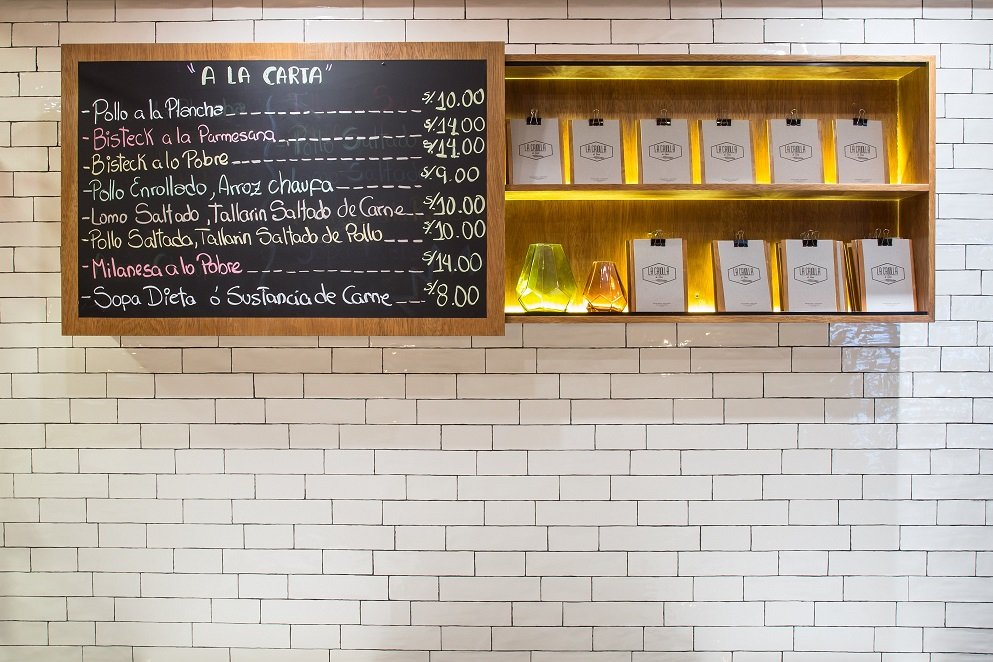 "A LA CARTA"
-Pollo a la Plancha S/. 10.00
-Bisteck a la Parmesana S/. 14.00
-Bisteck a lo Pobre S/. 14.00
-Pollo Enrollado, Arroz chaufa S/. 9.00
-Lomo Saltado, Tallarin Saltado de Carne S/. 10.00
-Pollo Saltada, Tallarin Saltado de Pollo S/. 10.00
-Milanesa a lo Pobre S/. 14.00
-Sopa Dieta ó Sustancia de Carne S/. 8.00
LA CRIOLLA
LA CRIOLLA
LA CRIOLLA
LA CRIOLLA
LA CRIOLLA
LA CRIOLLA
LA CRIOLLA
LA CRIOLLA
LA CRIOLLA
LA CRIOLLA